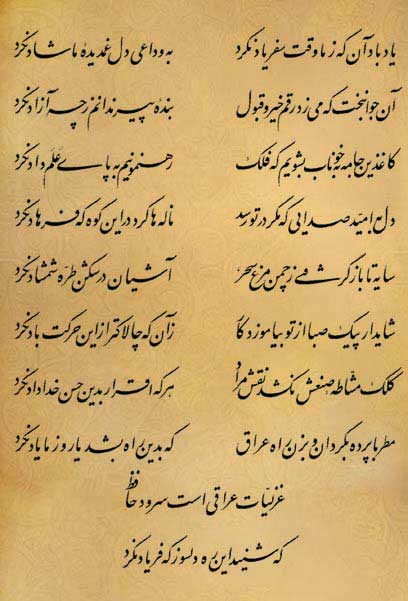 یاد باد آن که ز ما وقت سفر یاد نکرد به وداعی دل غمدیده ما شاد نکرد
آن جوانبخت که می زد رقم خیر و قبول بنده پیر ندانم ز چه آزاد نکرد
کاغذین جامه به خوناب بشویم که فلک رهنمونیم به پای علم داد نکرد
دل به امید صدایی که مگر در تو رسد ناله ها کرد در این کوه که فرهاد نکرد
سایه تا بازگرفتی ز چمن مرغ سحر آشیان در شکن طره شمشاد نکرد
شاید ار پیک صبا از تو بیاموزد کار زان که چالاکتر از این حرکت باد نکرد
کلک مشاطه صنعش نکشد نقش مراد هر که اقرار بدین حسن خداداد نکرد
مطربا پرده بگردان و بزن راه عراق که بدین راه بشد یار و ز ما یاد نکرد
غزلیات عراقی است سرود حافظ
که شنید این ره دلسوز که فریاد نکرد